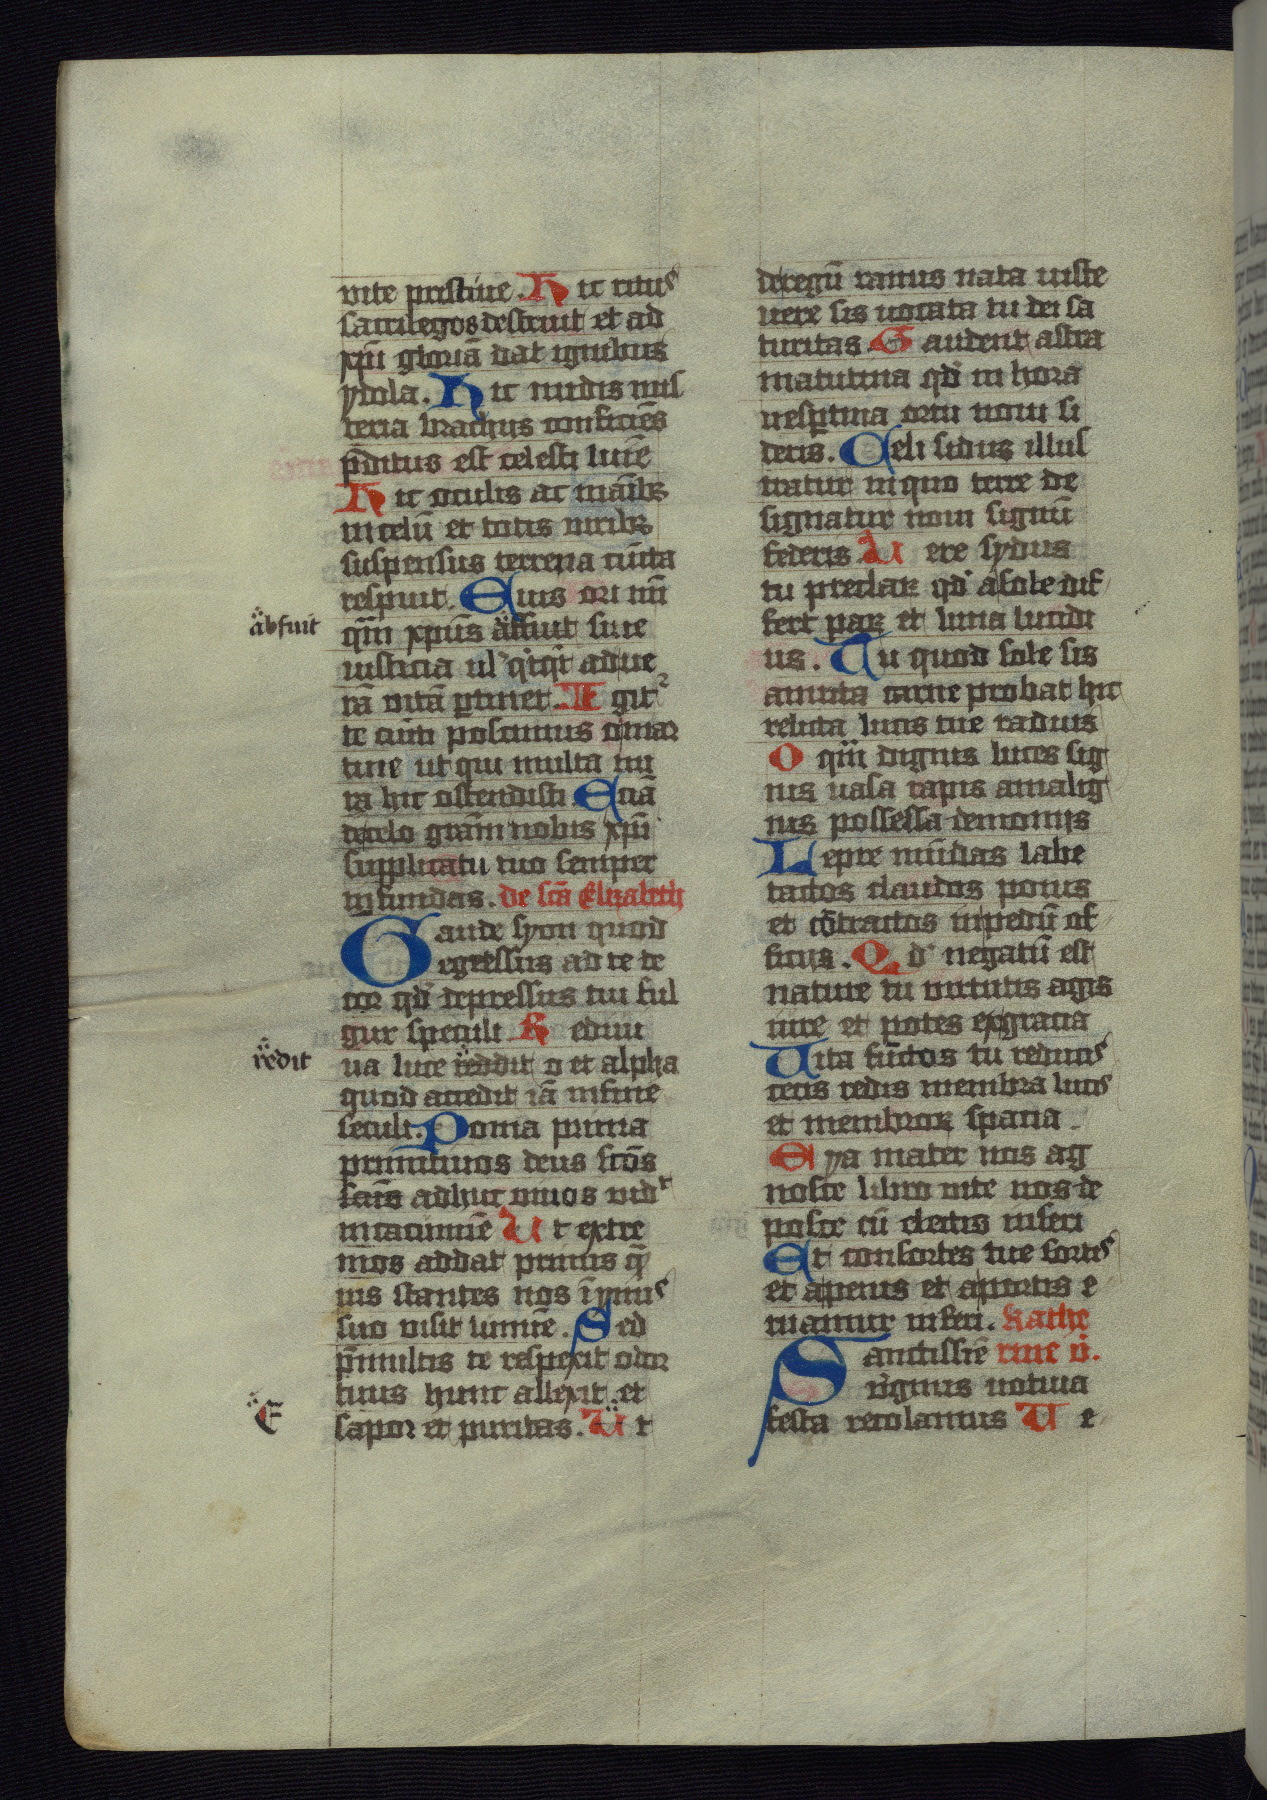 vite pristine. Hic ritus
sacrilegos destruit et ad
xpi gloriā dat ignibus
ydola. Hic nudis mis
teria brachiis conficiēs
p̄ditus est celesti lumē
Hic oculis ac manibꝫ
in celū et totis viribꝫ
suspensus terrena cūcta
respuit. Cuius ori nū
abfuit
qm̄ xpūs affuit sive
iusticia ul' q'cq't ad ve
rā vitā ptinet. Igit
te cuncti poscimus o mar
tine ut qui multa mi
ra hic ostendisti Etiā
de celo grām nobis xpū
supplicatu tuo semper
infundas. de scā Elizabeth
Gaude syon quod
egressus ad te de
cor qd' depressus tui ful
gur speculi Rediui
redit
va luce reddit o et alpha
quod accedit iā in fine
seculi. Poma prima
primitivos deus scōs
scās adhuc vivos vid't
mitatimine Ut extre
mos addat primis q̄
vis stantes nos ī ymis
suo visit lumīe. Sed
p̄multis te respexit odor
tuus hunc allexit et
E
sapor et puritas. Ut
de regū ramis nata iuste
vere sis vocata tu dei sa
turitas. Gaudent astra
matutina qd' in hora
vesptina ortu novi si
deris. Celi sidus illus
tratur in quo terre de
signatur novi signū
federis. Vere sydus
tu preclarꝫ qd' a sole dif
fert parꝫ et luna lucidi
us. Tu quod sole sis
amicta carne probat hic
relicta lucis tue radiis
O qm̄ dignis luces sig
nis vasa rapis a malig
nis possessa demoniis
Lepre mūdas labe
tactos claudos ponis
et cōtractos in pedū of
ficiis. Qd' negatū est
nature tu virtutis agis
iure et potes ex gracia
Vita fūctos tu reducis
cecis redis membra lucis
et membrorꝫ spacia.
Eya mater nos ag
nosce libro vite nos de
posce cū electis inseri
Et consortes tue sortis
et a penis et a portis e
ruamur inferi. Kathe
Sanctissīe rine v̄.
v̄ginis votiva
festa recolamus Ue